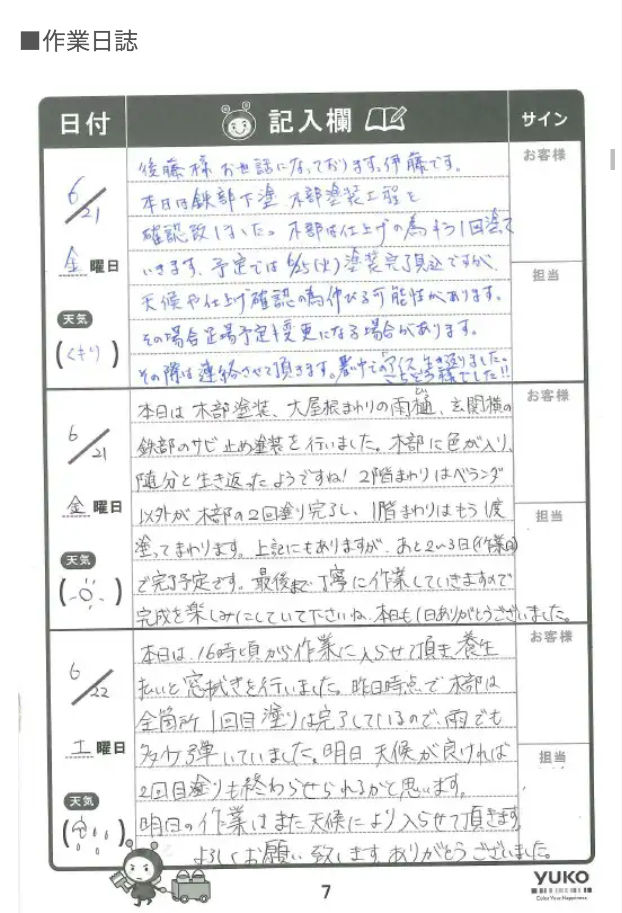 ■作業日誌
日付
記入欄
サイン
6/21
金曜日
天気
(くもり)
後藤様 お世話になっております。伊藤です。
本日は鉄部下塗、木部塗装工程を
確認致しました。木部は仕上げの為もう1回塗て
いきます。予定では6/25(火)塗装完了見込ですが、
天候や仕上げ確認の為伸びる可能性があります。
その場合足場予定も変更になる場合があります。
その際は連絡させて頂きます。暑い中でのアイス、生き返りました。
ごちそう様でした!!
お客様
担当
6/21
金曜日
天気
本日は木部塗装、大屋根まわりの雨樋、玄関横の
とい
鉄部のサビ止め塗装を行いました。木部に色が入り、
随分と生き返ったようですね! 2階まわりはベランダ
以外が木部の2回塗り完了し、1階まわりはもう1度
塗ってまわります。上記にもありますが、あと2〜3日(作業日)
で完了予定です。最後まで丁寧に作業していきますので
完成を楽しみにしていて下さいね。本日も1日ありがとうございました。
お客様
担当
6/22
土曜日
天気
本日は、16時頃から作業に入らせて頂き、養生
払いと窓拭きを行いました。昨日時点で木部は
全箇所1回目塗りは完了しているので、雨でも
多少弾いていました。明日 天候が良ければ
2回目塗りも終わらせられるかと思います。
明日の作業はまた天候により入らせて頂きます。
よろしくお願い致します。ありがとうございました。
お客様
担当
7
YUKO
Color Your Happiness